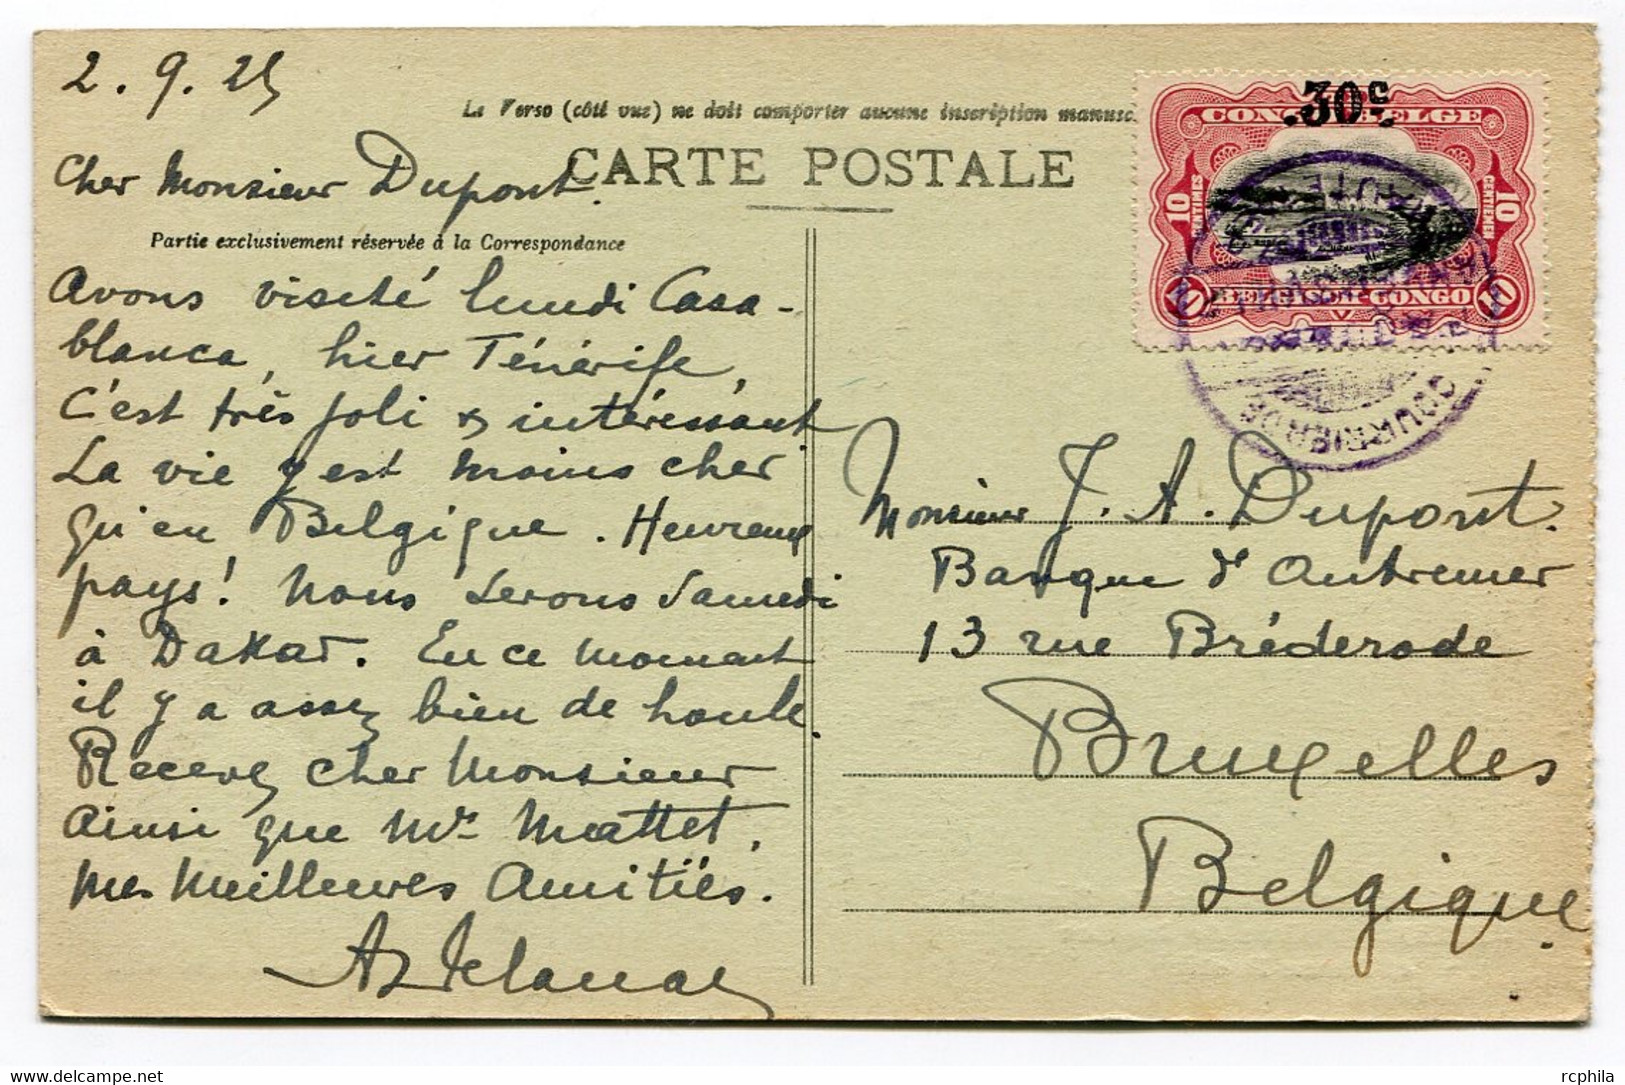 2.9.25
Le Verso (côté vue) ne doit comporter aucune inscription manusc
CARTE POSTALE
Cher Monsieur Dupont.
Partie exclusivement réservée à la Correspondance
Avons visité lundi Casa-
blanca, hier Ténérife,
C'est très joli & intéressant
La vie y est moins cher
qu'en Belgique. Heureux
pays! Nous serons samedi
à Dakar. En ce moment
il y a assez bien de houle.
Recevez cher Monsieur
ainsi que Mr Mattet,
mes meilleures amitiés.
.30c.
CONGO BELGE
10 CENTIMES
10 CENTIEMEN
10 BELGISCH-CONGO 10
COURRIER DE
HAUTE
Monsieur J. A. Dupont.
Banque d'Outremer
13 rue Bréderode
Bruxelles
Belgique.
delcampe.net
rcphila